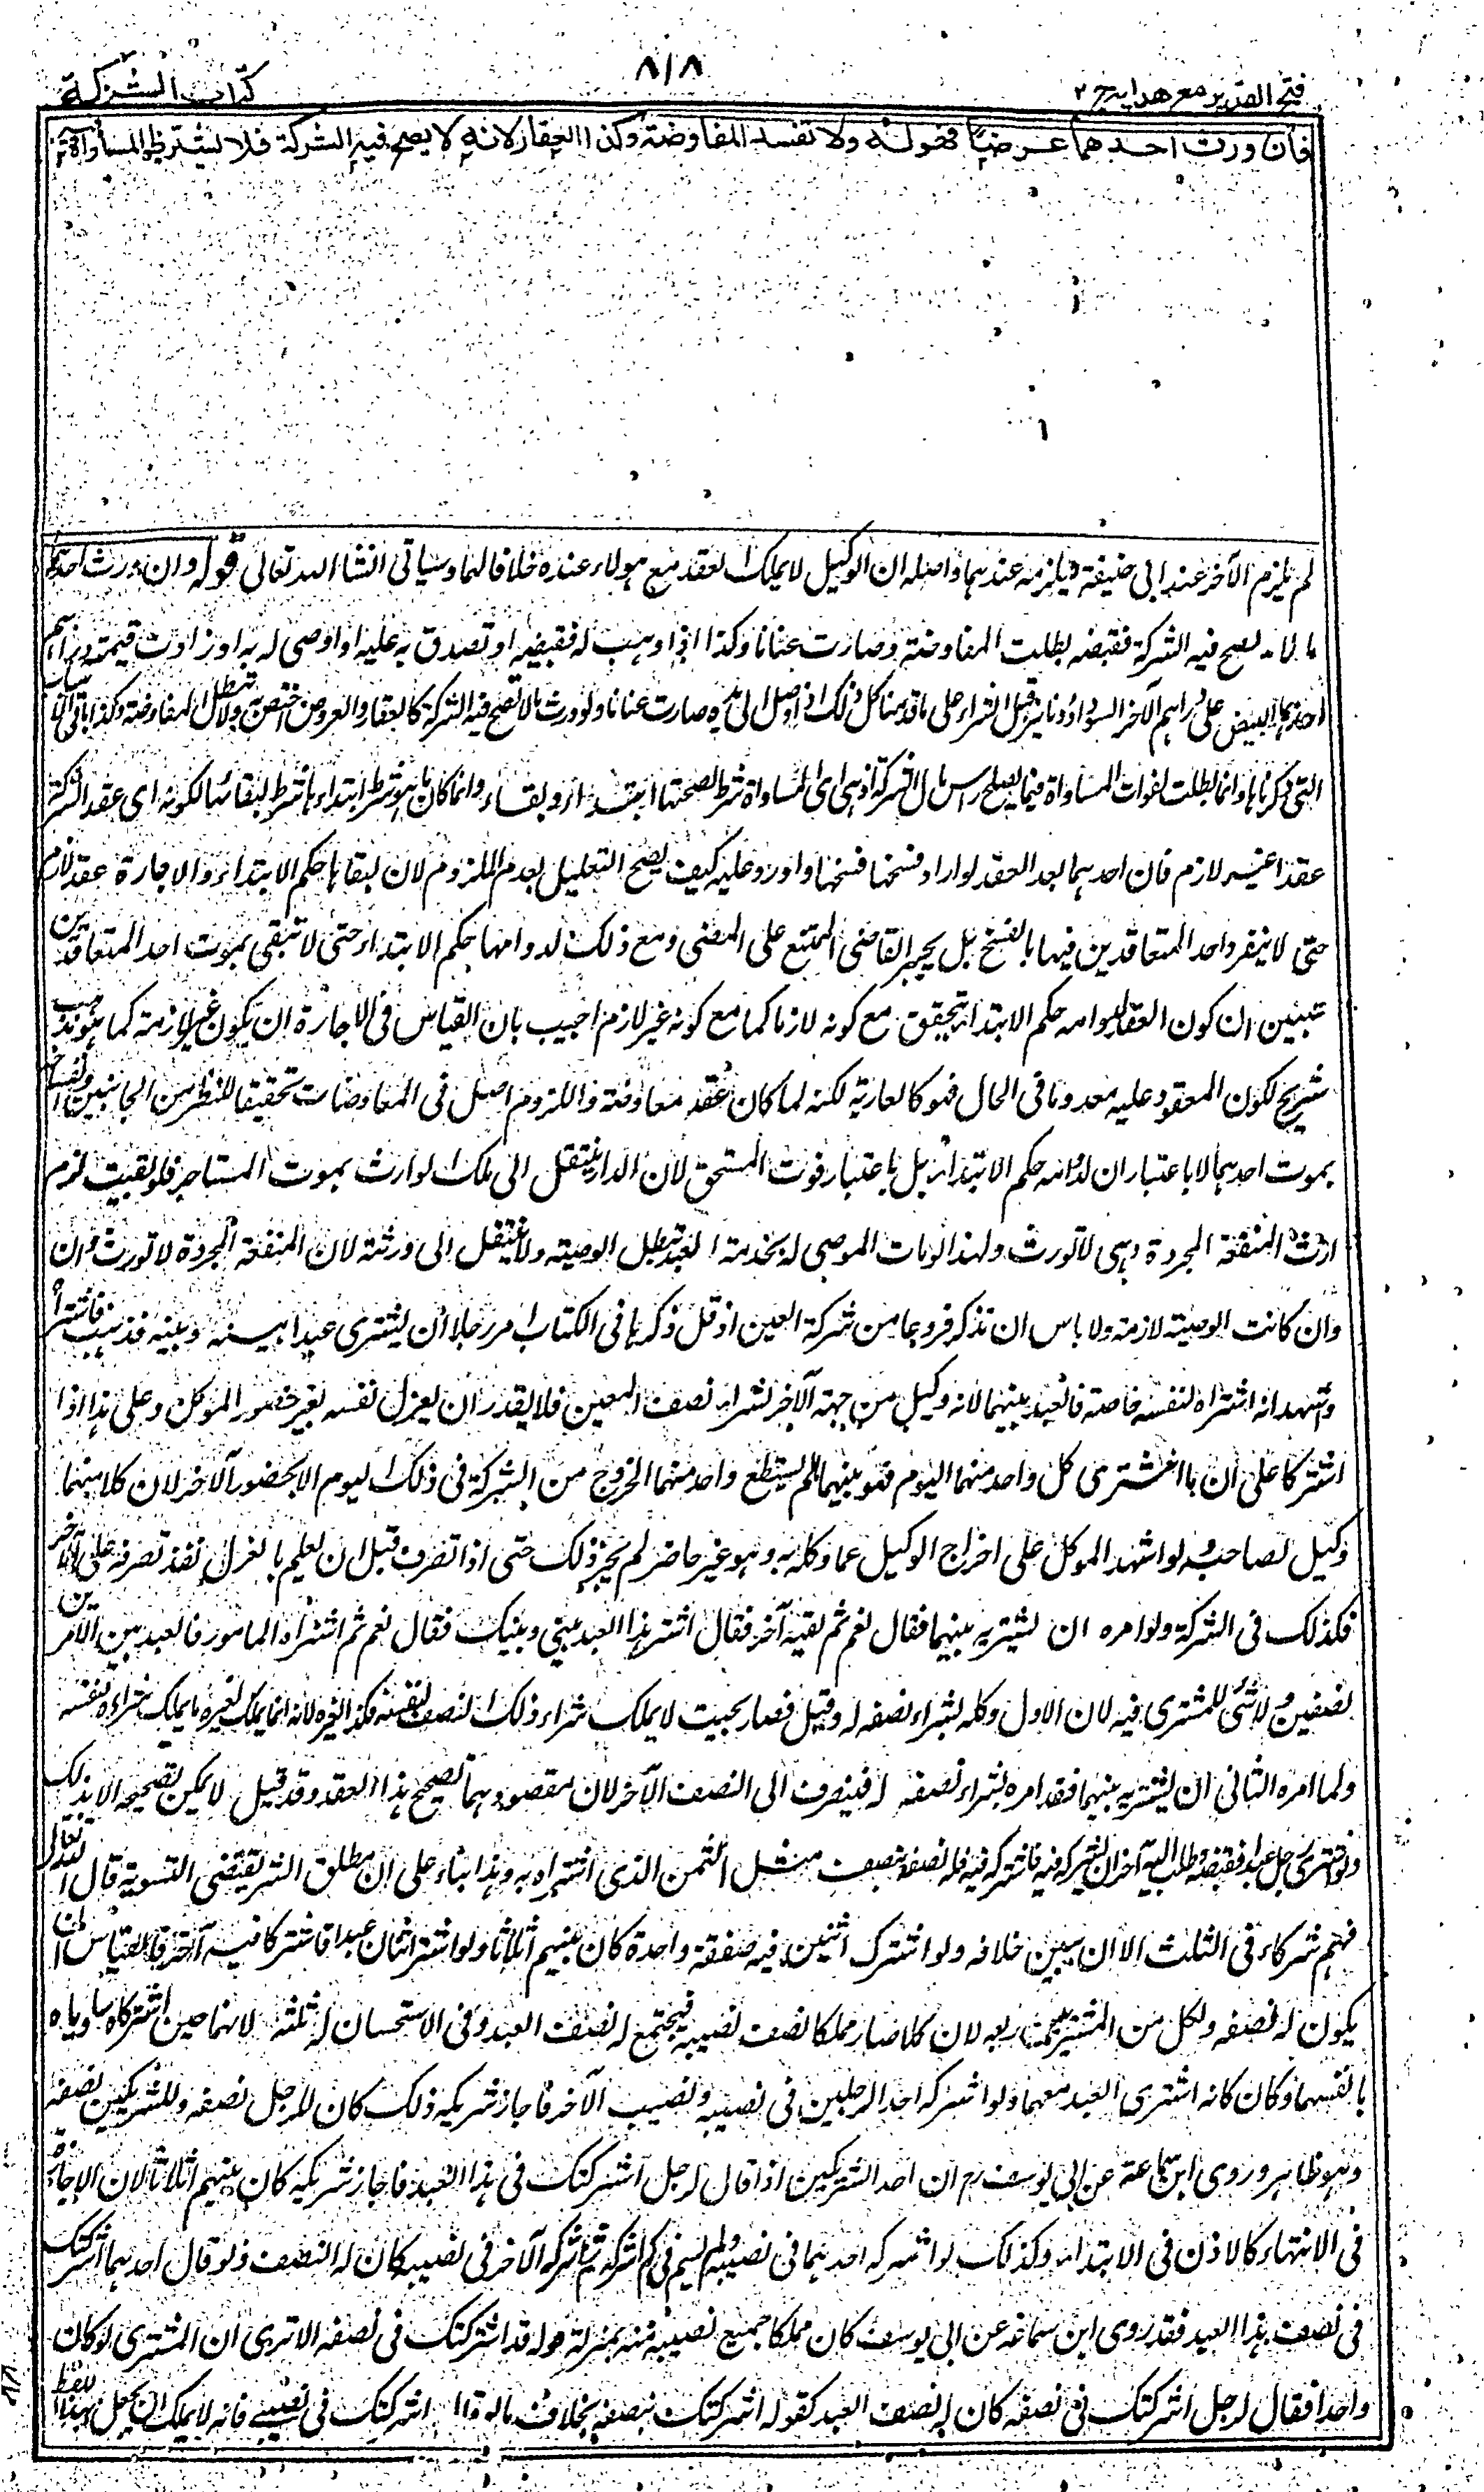 فتح القدير مع هدايه ج ٢
٨١٨
كتاب الشركة
فان ورث احدهما عرضا فهو له ولا تفسد المفاوضة وكذا العقار لانه لا يصح فيه الشركة فلا يشترط المساواة فيه
لم يلزم الآخر عند ابى حنيفة ويلزمه عندهما واصله ان الوكيل لا يملك العقد مع هولاء عنده خلافا لهما وسياتى انشا الله تعالى قوله وان ورث احدهما
مالا يصح فيه الشركة فقبضه بطلت المفاوضة وصارت عنانا وكذا اذا وهب له فقبضه او تصدق به عليه او اوصى له به او زادت قيمة دراهم
احدهما البيض على دراهم الآخر السود او دنانيره قبل الشراء على ما قدمنا كل ذلك اذا وصل الى يده صارت عنانا ولو ورث مالا تصح فيه الشركة كالعقار والعروض اختص به ولا تبطل المفاوضة وكذا باقى الاسباب
التى ذكرناها وانما بطلت لفوات المساواة فيما يصلح راس مال الشركة اذ هى اى المساواة شرط لصحتها ابتداء وبقاء وانما كان ما هو شرط ابتداءها شرط لبقائها لكونه اى عقد الشركة
عقدا غير لازم فان احدهما بعد العقد لو اراد فسخها فسخها واورد عليه كيف يصح التعليل بعدم اللزوم لان لبقائها حكم الابتداء والاجارة عقد لازم
حتى لا ينفرد احد المتعاقدين فيها بالفسخ بل يجبر القاضى الممتنع على المضى ومع ذلك لدوامها حكم الابتداء حتى لا تبقى بموت احد المتعاقدين
تبين ان كون العقد لدوامه حكم الابتداء يتحقق مع كونه لازما كما مع كونه غير لازم اجيب بان القياس فى الاجارة ان يكون غير لازمة كما هو مذهب
شريح لكون المعقود عليه معدوما فى الحال فهو كالعارية لكنه لما كان عقد معاوضة واللزوم اصل فى المعاوضات تحقيقا للنظر من الجانبين وانفساخها
بموت احدهما لا باعتبار ان لدوامه حكم الابتداء بل باعتبار فوت المستحق لان الدار ينتقل الى ملك الوارث بموت المستاجر فلو بقيت لزم
ارث المنفعة المجردة وهى لا تورث ولهذا لو مات الموصى له بخدمة العبد تبطل الوصية ولا ينتقل الى ورثته لان المنفعة المجردة لا تورث وان
وان كانت الوصية لازمة ولا باس ان نذكر فروعا من شركة العين اذ قل ذكرها فى الكتاب امر رجلا ان يشترى عبدا بينه وبينه فذهب فاشتراه
واشهد انه اشتراه لنفسه خاصة فالعبد بينهما لانه وكيل من جهة الآخر بشراء نصف المعين فلا يقدر ان يعزل نفسه بغير حضور الموكل وعلى هذا اذا
اشتركا على ان ما اشترى كل واحد منهما اليوم فهو بينهما لم يستطع واحد منهما الخروج من الشركة فى ذلك اليوم الا بحضور الآخر لان كلا منهما
وكيل لصاحبه ولو اشهد الموكل على اخراج الوكيل عما وكله به وهو غير حاضر لم يجز ذلك حتى اذا تصرف قبل ان يعلم بالعزل نفذ تصرفه على الآخر
فكذلك فى الشركة ولو امره ان يشتريه بينهما فقال نعم ثم لقيه آخر فقال اشتر هذا العبد بينى وبينك فقال نعم ثم اشتراه المامور فالعبد بين الآمرين
نصفين ولا شئ للمشترى فيه لان الاول وكله بشراء نصفه له وقبل فصار بحيث لا يملك شراء ذلك النصف لنفسه فكذا لغيره لانه انما يملك لغيره ما يملك شراءه لنفسه
ولما امره الثانى ان يشتريه بينهما فقد امره بشراء نصفه له فينصرف الى النصف الآخر لان مقصودهما تصحيح هذا العقد وقد قيل لا يمكن تصحيحه الا بذلك
ولو اشترى رجل عبدا فقبضه وطلب اليه آخر ان يشركه فيه فاشركه فيه فله نصفه بنصف مثل الثمن الذى اشتراه به وهذا بناء على ان مطلق الشركة يقتضى التسوية قال الله تعالى
فهم شركاء فى الثلث الا ان يبين خلافه ولو اشترك اثنين فيه صفقة واحدة كان بينهم اثلاثا ولو اشترى اثنان عبدا فاشركا فيه آخر فالقياس ان
يكون له نصفه ولكل من المشتريين ربعه لان كلا صار مملكا نصف نصيبه فيجتمع له نصف العبد وفى الاستحسان له ثلثه لانهما حين اشركاه ساوياه
بانفسهما وكان كانه اشترى العبد معهما ولو اشركه احد الرجلين فى نصيبه ونصيب الآخر فاجاز شريكه ذلك كان للرجل نصفه وللشريكين نصفه
وهو ظاهر وروى ابن سماعة عن ابى يوسف رح ان احد الشريكين اذا قال لرجل اشركتك فى هذا العبد فاجاز شريكه كان بينهم اثلاثا لان الاجازة
فى الانتهاء كالاذن فى الابتداء وكذلك لو اشركه احدهما فى نصيبه ولم يسم فى كم اشركه ثم اشركه الآخر فى نصيبه كان له النصف ولو قال احدهما اشركتك
فى نصف هذا العبد فقد روى ابن سماعه عن ابى يوسف كان مملكا جميع نصيبه منه بمنزلة قوله قد اشركتك فى نصفه الا ترى ان المشترى لو كان
واحدا فقال لرجل اشركتك فى نصفه كان له نصف العبد كقوله اشركتك بنصفه بخلاف ما لو قال اشركتك فى نصيبى فانه لا يملك ان يجعل بهذا اللفظ